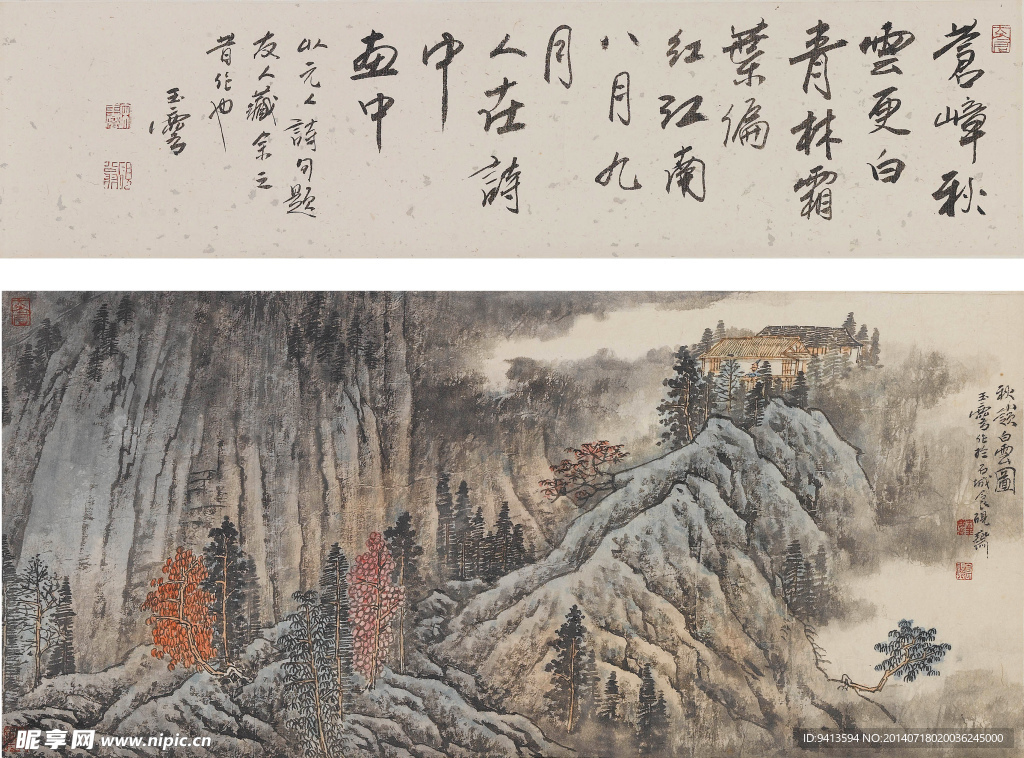 蒼嶂秋
雲更白
青林霜
葉偏
紅江南
八月九
月
人在詩
中
畫中
以元人詩句題
友人藏余之
昔作也
玉霽
秋嶺白雲圖
玉霽作於石城食硯齋
昵享网 www.nipic.cn
ID:9413594 NO:20140718020036245000